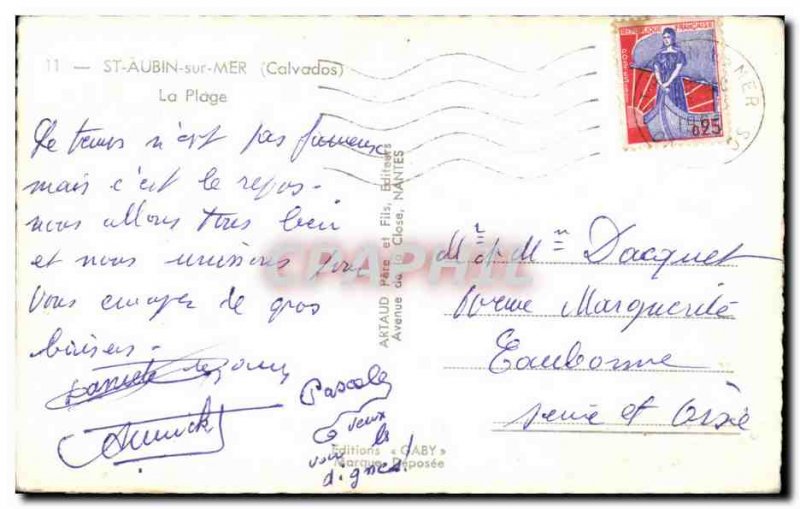 11 — ST-AUBIN-sur-MER (Calvados)
La Plage
Le temps n'est pas fameux
mais c'est le repos -
nous allons tous bien
et nous unissons pour
vous envoyer de gros
baisers -
Annick
Pascale
veux
voir les
dignes!
ARTAUD Père et Fils, Editeurs
Avenue de la Close, NANTES
Editions « GABY »
Marque Déposée
CPAPHIL
REPUBLIQUE FRANÇAISE
0,25
MER
Mr et Mme Dacquet
Marguerite
Eaubonne
Seine et Oise